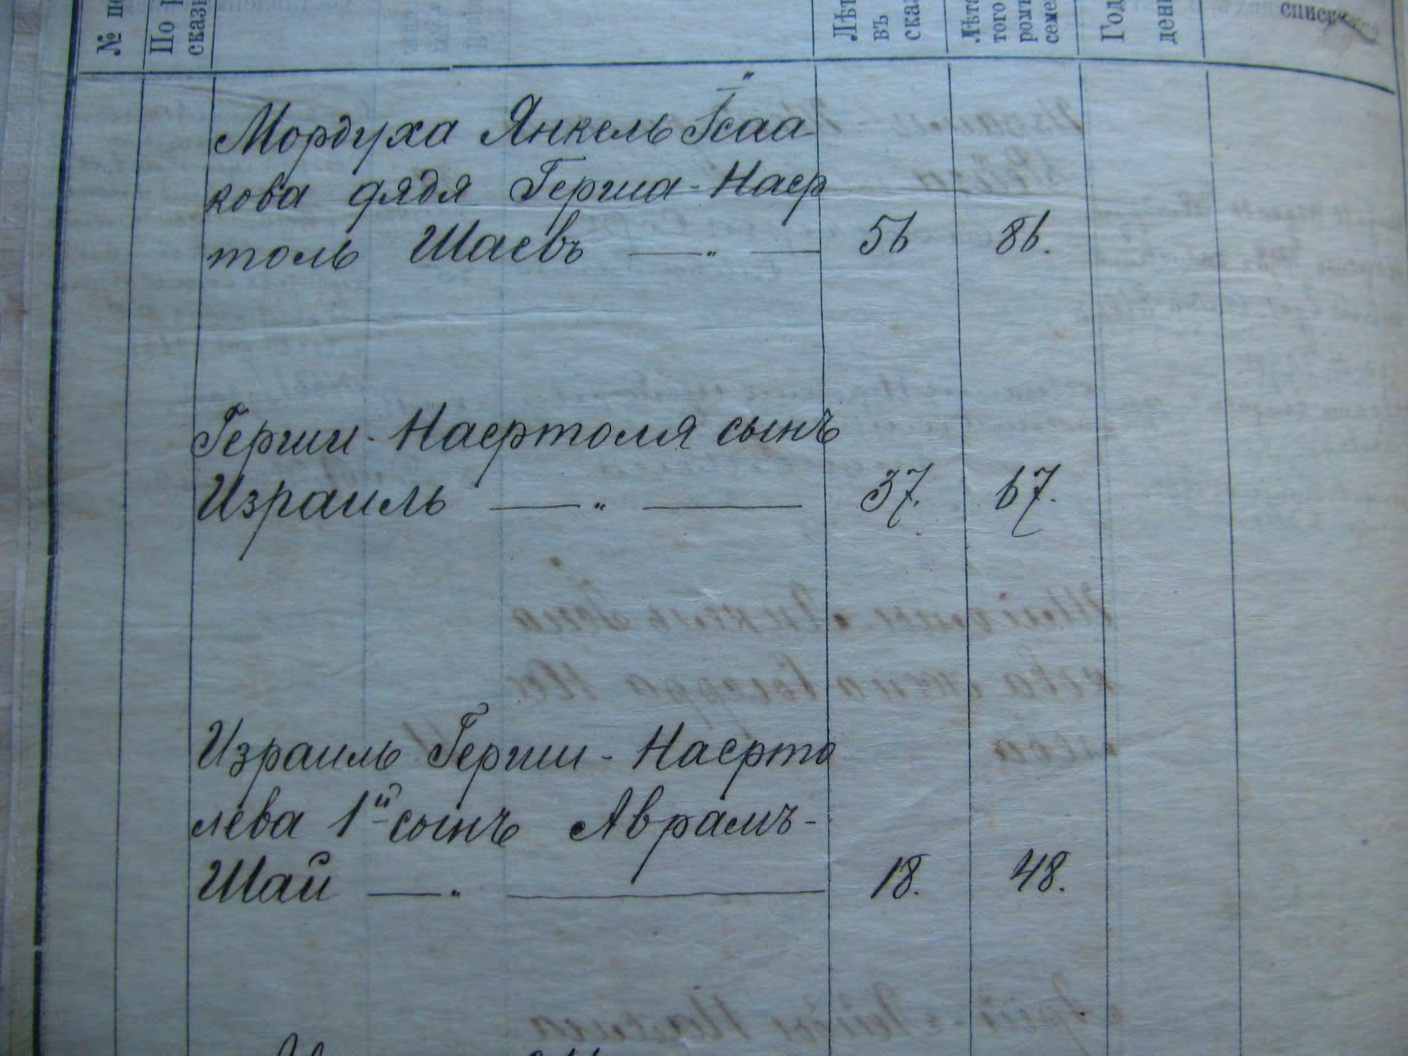 № по
По р
сказк
Лѣт
въ
сказ
Лѣта
того
ромъ
семе
Год
ден
списк
Мордуха Янкель Ісаа-
кова дядя Герша-Наф
толь Шаевъ — „ —
56 86.
Герши-Нафтоля сынъ
Израиль — „ —
37. 67.
Израиль Герши-Нафто
лева 1й сынъ Аврамъ-
Шай — „ —
18. 48.